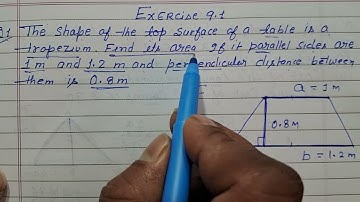 Exercise 9.1
Q1 The shape of the top surface of a table is a
trapezium. Find its area if it parallel sides are
1m and 1.2 m and perpendicular distance between
them is 0.8m
a = 1m
0.8m
b = 1.2m